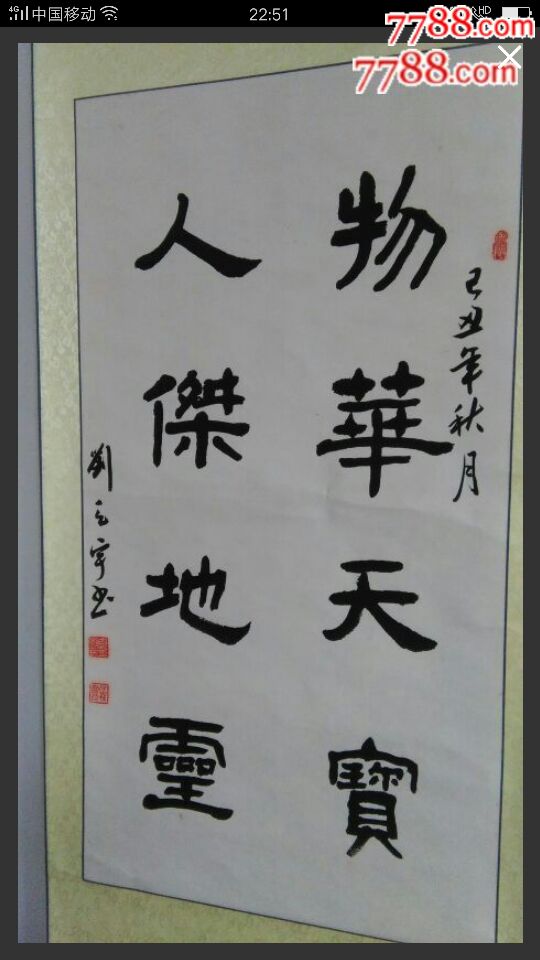 4G 中国移动
22:51
HD
7788.com
7788.com
己丑年秋月
物華天寶
人傑地靈
劉云宇书